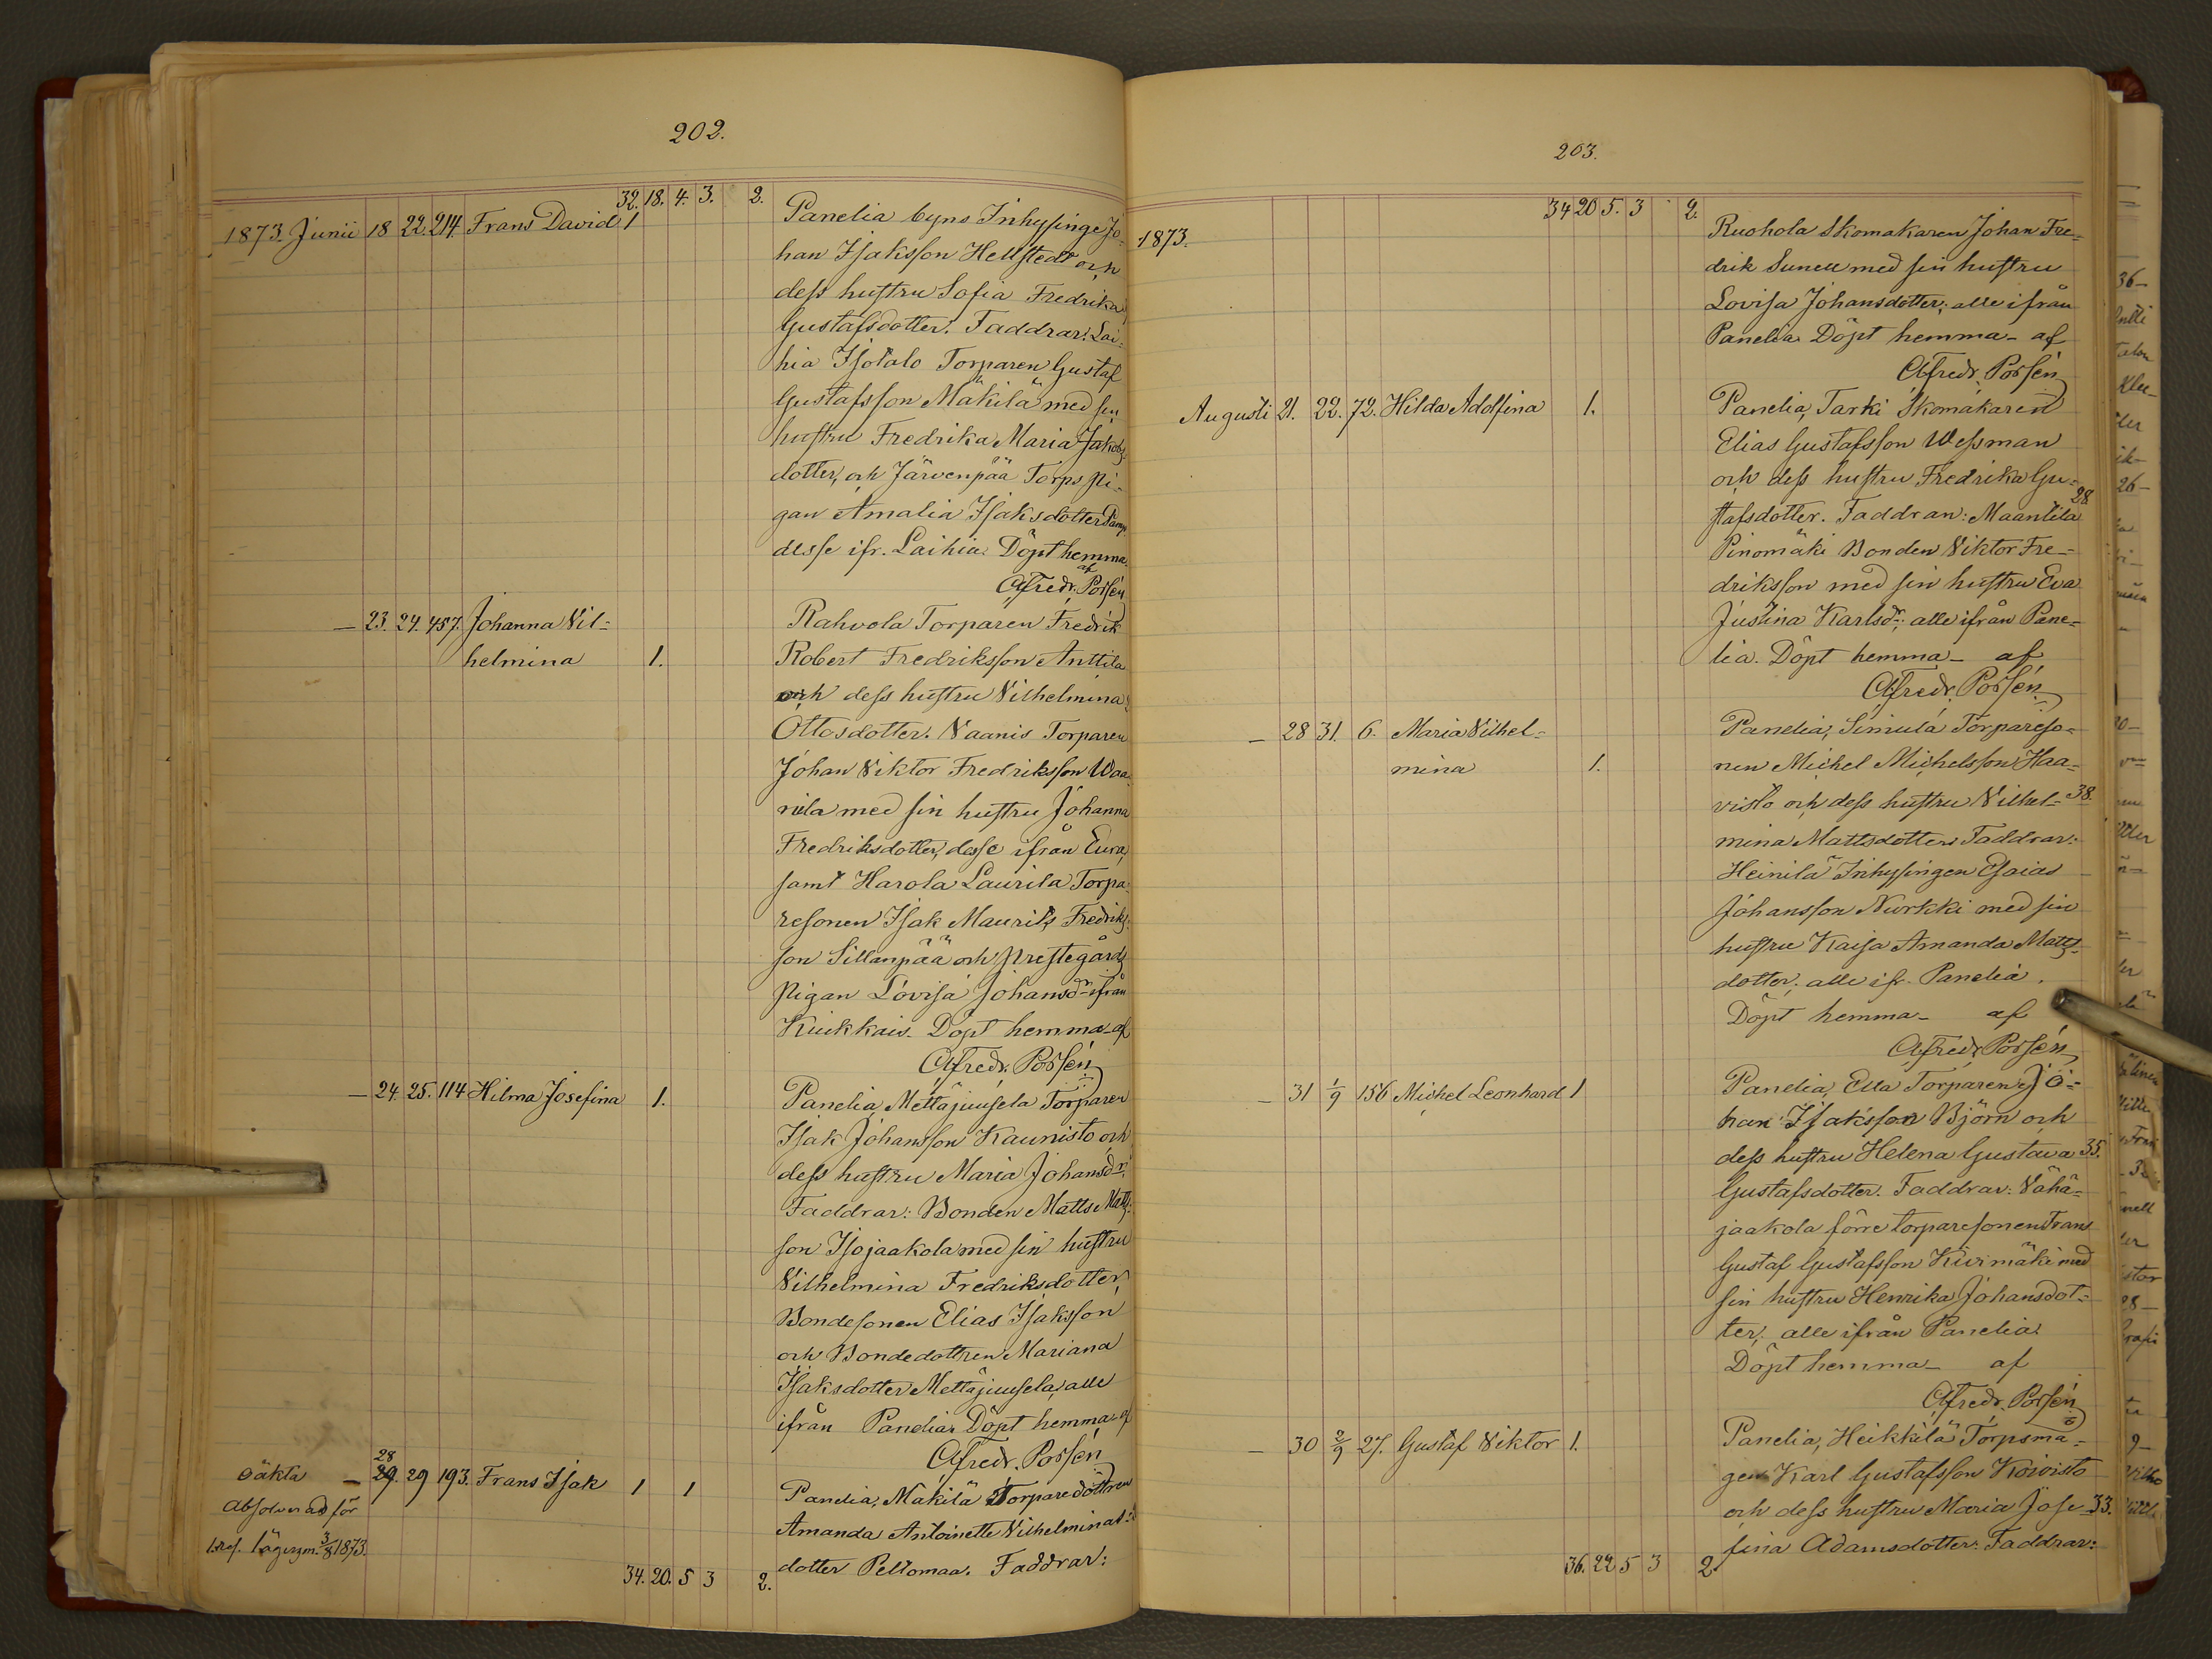 202.
32. 18. 4. 3. 2.
1873. Junii 18 22. 214. Frans David 1 Panelia byns Inhysinge Jo-
han Isaksson Hellstedt och
dess hustru Sofia Fredrika
Gustafsdotter. Faddrar: Lai-
hia Isotalo Torparen Gustaf
Gustafsson Mäkilä med sin
hustru Fredrika Maria Jakobs-
dotter, och Järvenpää Torps pi-
gan Amalia Isaksdotter
desse ifr. Laihia. Döpt hemma
af
Alfredr. Porsén
— 23. 24. 457. Johanna Vil- Rahvola Torparen Fredrik
helmina 1. Robert Fredriksson Anttila
och dess hustru Vilhelmina
Ottosdotter. Naanis Torparen
Johan Viktor Fredriksson Waa-
nila med sin hustru Johanna
Fredriksdotter, desse ifrån Eura,
samt Harola Laurila Torpa-
resonen Isak Maurits Fredriks-
son Sillanpää och Prestegårds
pigan Lovisa Johansdr ifrån
Kiukkais. Döpt hemma af
Alfredr. Porsén
— 24. 25. 114 Hilma Josefina 1. Panelia, Mettäjuusela Torparen
Isak Johansson Kaunisto och
dess hustru Maria Johansdr.
Faddrar: Bonden Matts Matts-
son Isojaakola med sin hustru
Vilhelmina Fredriksdotter,
Bondesonen Elias Isaksson
och Bondedottren Mariana
Isaksdotter Mettäjuusela, alle
ifrån Panelia. Döpt hemma af
Alfredr. Porsén
28
oäkta — 29. 29 193. Frans Isak 1 1 Panelia, Mäkilä Torparedottren
Absolverad för Amanda Antoinette Vilhelmina
1. res. lägersm. 3/8 1873. dotter Peltomaa. Faddrar:
34. 20. 5 3 2.
203.
34 20 5. 3 2.
1873. Ruohola Skomakaren Johan Fre-
drik Sunell med sin hustru
Lovisa Johansdotter; alle ifrån
Panelia. Döpt hemma – af
Alfredr. Porsén
Augusti 21. 22. 72. Hilda Adolfina 1. Panelia, Tarki Skomakaren
Elias Gustafsson Wessman
och dess hustru Fredrika Gu- 28
stafsdotter. Faddrar: Maantila
Pinomäki Bonden Viktor Fre-
driksson med sin hustru Eva
Justina Karlsdr; alle ifrån Pane-
lia. Döpt hemma – af
Alfredr. Porsén
— 28 31. 6. Maria Vilhel- Panelia, Simula Torpareso-
mina 1. nen Michel Michelsson Haa-
visto och dess hustru Vilhel- 38.
mina Mattsdotter. Faddrar:
Heinilä Inhysingen Esaias
Johansson Nurkki med sin
hustru Kaisa Amanda Matts-
dotter; alle ifr. Panelia.
Döpt hemma – af
Alfredr. Porsén
— 31 1/9 156 Michel Leonhard 1 Panelia, Ella Torparen Jo-
han Isaksson Björn och
dess hustru Helena Gustava 35.
Gustafsdotter. Faddrar: Vähä-
jaakola förre torparesonen Frans
Gustaf Gustafsson Kivimäki med
sin hustru Henrika Johansdot-
ter; alle ifrån Panelia.
Döpt hemma – af
Alfredr. Porsén
— 30 2/9 27. Gustaf Viktor 1. Panelia, Heikkilä Torpsmå-
gen Karl Gustafsson Koivisto
och dess hustru Maria Jose- 33.
fina Adamsdotter. Faddrar:
36. 22 5 3 2